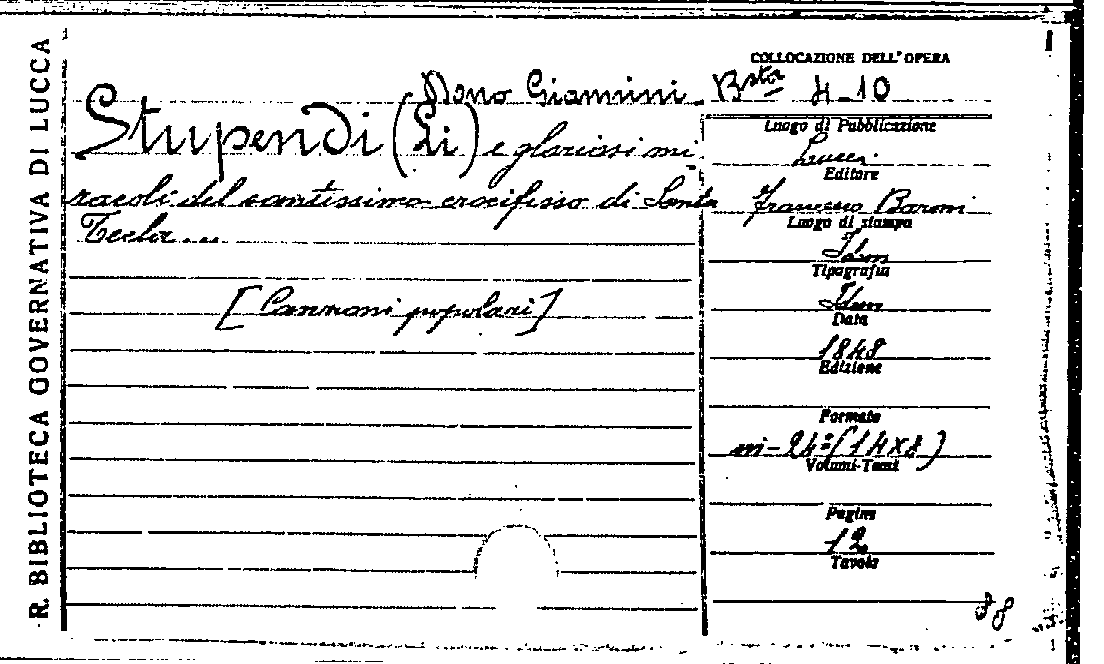 R. BIBLIOTECA GOVERNATIVA DI LUCCA
COLLOCAZIONE DELL'OPERA
Dono Giannini Bsta 4-10
Stupendi (Li) e gloriosi mi
racoli del santissimo crocifisso di Santa
Tecla...
[Canzoni popolari]
Luogo di Pubblicazione
Lucca
Editore
Francesco Baroni
Luogo di stampa
Idem
Tipografia
Idem
Data
1848
Edizione
Formato
in-24°(14x8)
Volumi-Tomi
Pagine
12
Tavole
88